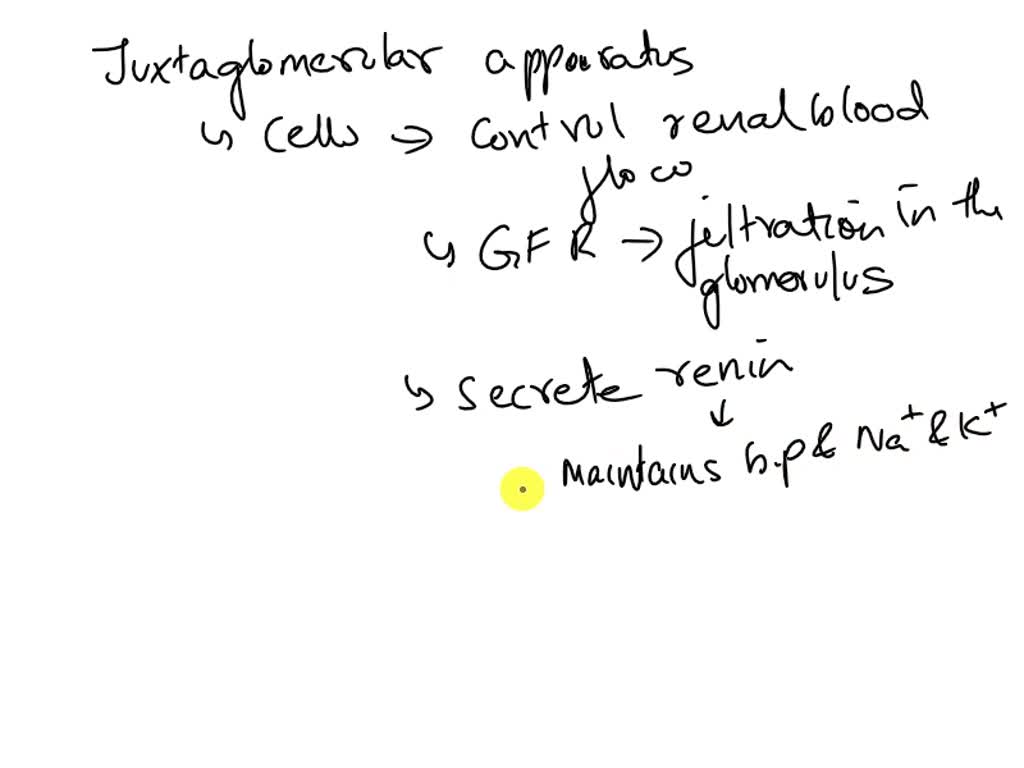 Juxtaglomerular apparatus
↳ Cells → Control renal blood
flow
↳ GFR → filtration in the
glomerulus
↳ secrete renin
↓
Maintains b.p & Na⁺ & K⁺